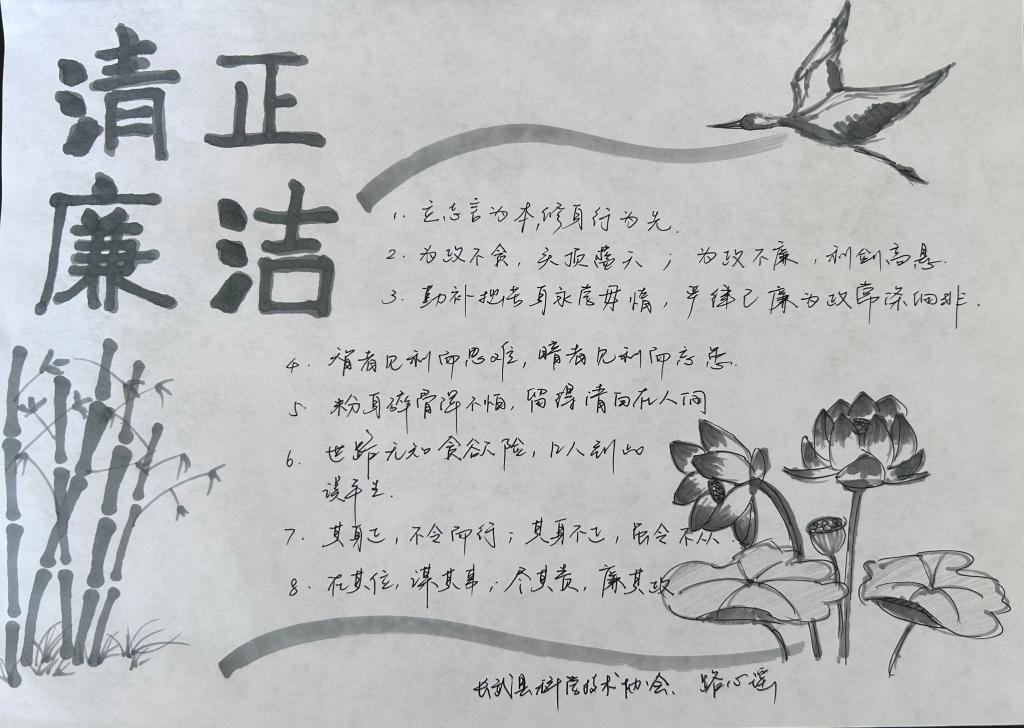 清 正
廉 洁
1. 立志言为本,修身行为先.
2. 为政不贪,头顶蓝天;为政不廉,利剑高悬.
3. 勤补拙 身永 毋惰,严律己廉为政常除细非.
4. 智者见利而思难,暗者见利而忘患.
5. 粉身碎骨浑不怕,留得清白在人间
6. 世路无知贪欲险,几人到此
误平生.
7. 其身正,不令而行;其身不正,虽令不从.
8. 在其位,谋其事;尽其责,廉其政
长武县科学技术协会、路心遥